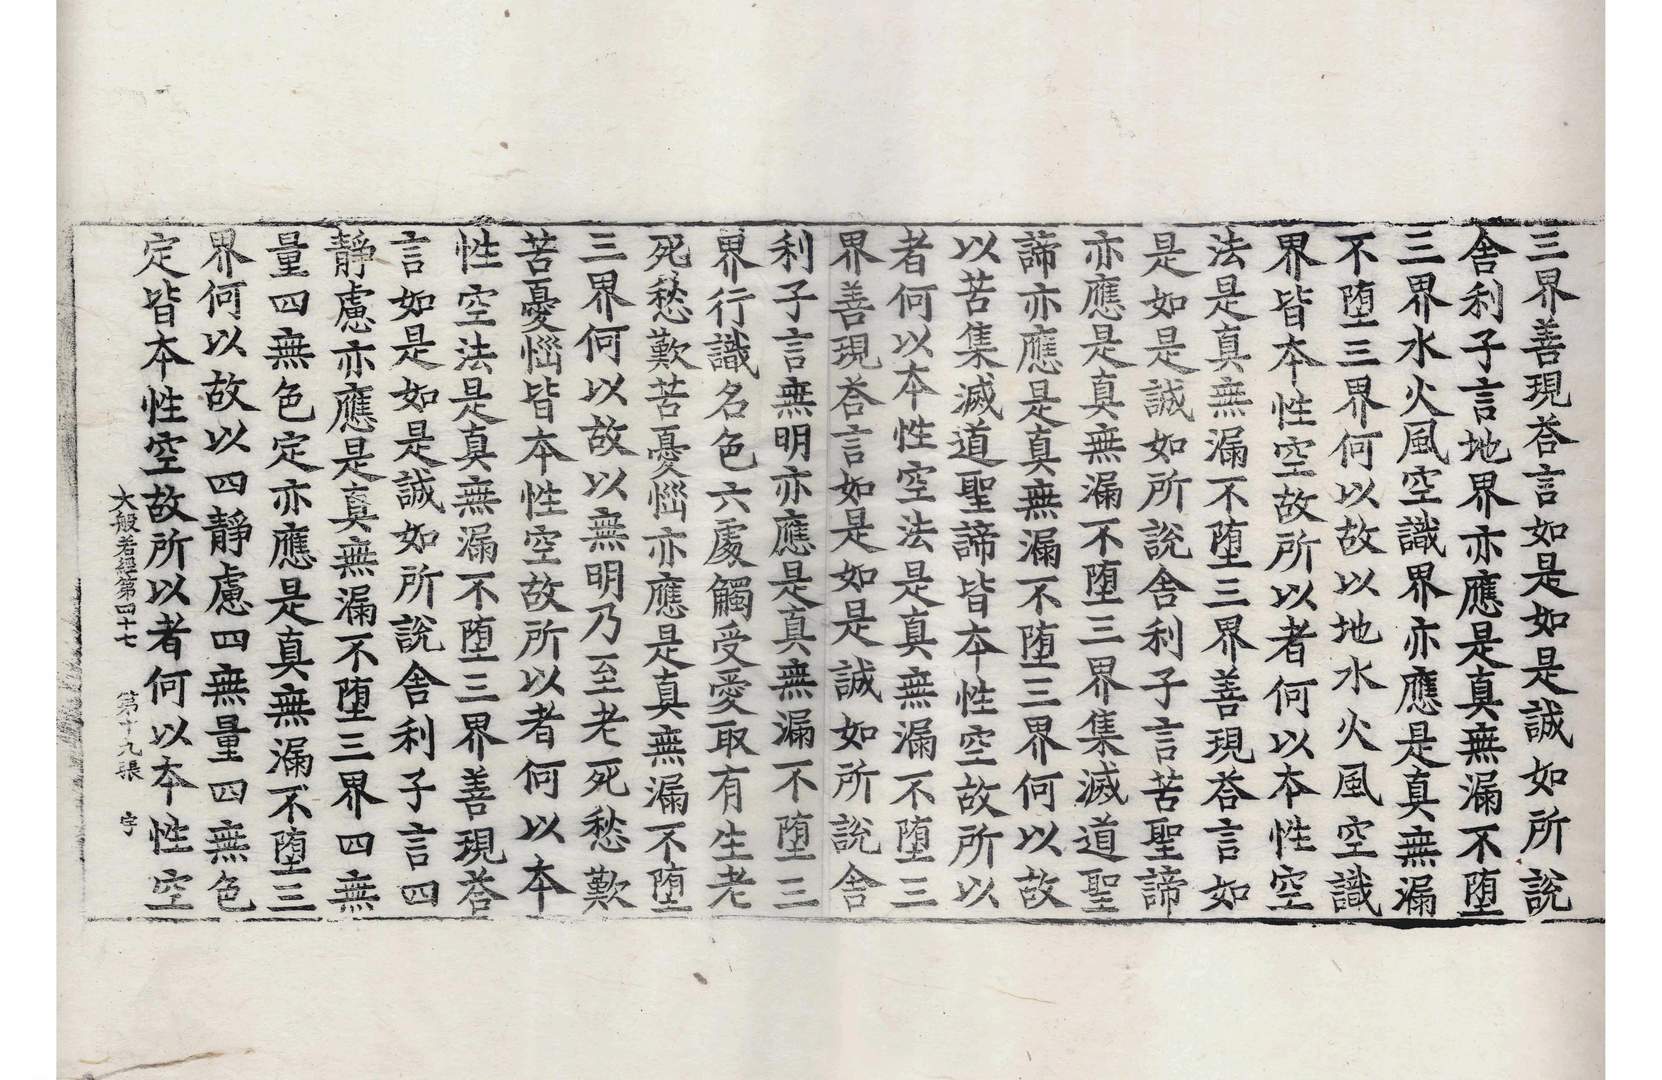 三界善現荅言如是如是誠如所說
舍利子言地界亦應是真無漏不墮
三界水火風空識界亦應是真無漏
不墮三界何以故以地水火風空識
界皆本性空故所以者何以本性空
法是真無漏不墮三界善現荅言如
是如是誠如所說舍利子言苦聖諦
亦應是真無漏不墮三界集滅道聖
諦亦應是真無漏不墮三界何以故
以苦集滅道聖諦皆本性空故所以
者何以本性空法是真無漏不墮三
界善現荅言如是如是誠如所說舍
利子言無明亦應是真無漏不墮三
界行識名色六處觸受愛取有生老
死愁歎苦憂惱亦應是真無漏不墮
三界何以故以無明乃至老死愁歎
苦憂惱皆本性空故所以者何以本
性空法是真無漏不墮三界善現荅
言如是如是誠如所說舍利子言四
靜慮亦應是真無漏不墮三界四無
量四無色定亦應是真無漏不墮三
界何以故以四靜慮四無量四無色
定皆本性空故所以者何以本性空
大般若經第四十七 第十九張 宇